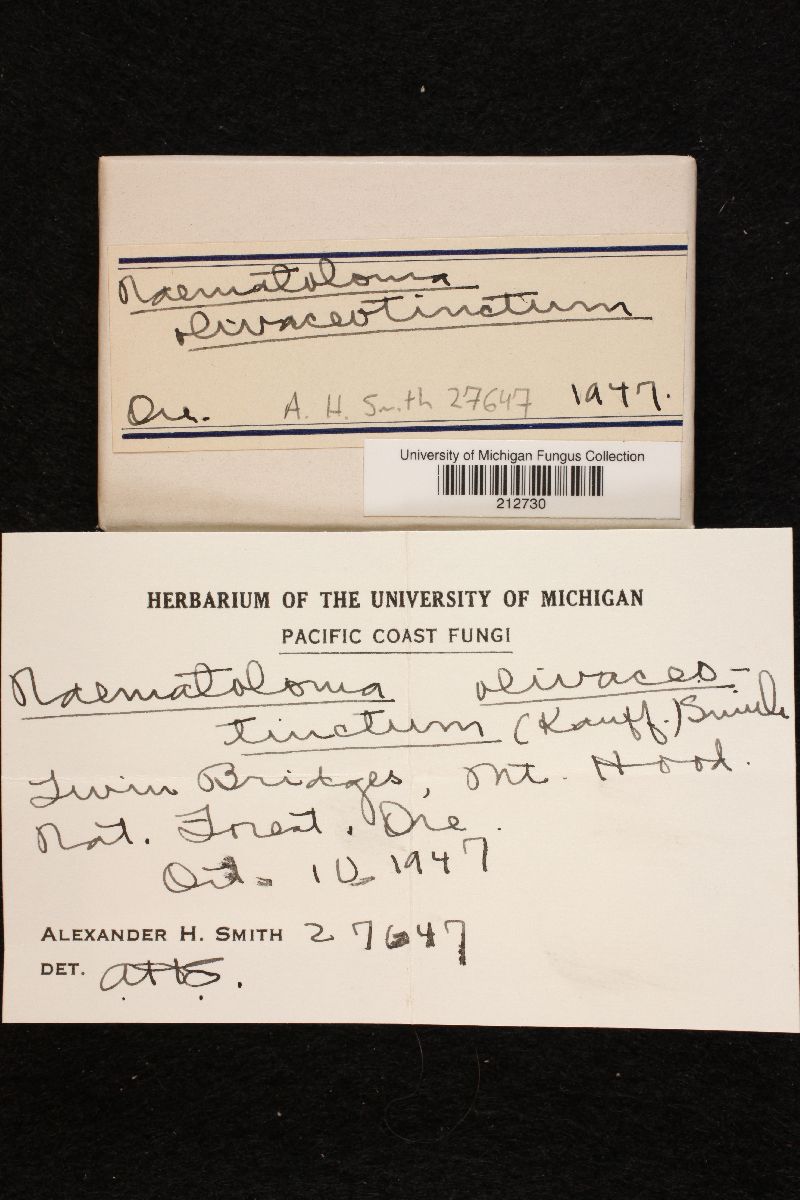 Naematoloma
olivaceotinctum
Ore. A. H. Smith 27647 1947.
University of Michigan Fungus Collection
212730
HERBARIUM OF THE UNIVERSITY OF MICHIGAN
PACIFIC COAST FUNGI
Naematoloma olivaceo-
tinctum (Kauff.) Smith
Twin Bridges, Mt. Hood.
Nat. Forest, Ore.
Oct. 1947
ALEXANDER H. SMITH 27647
DET. AHS.